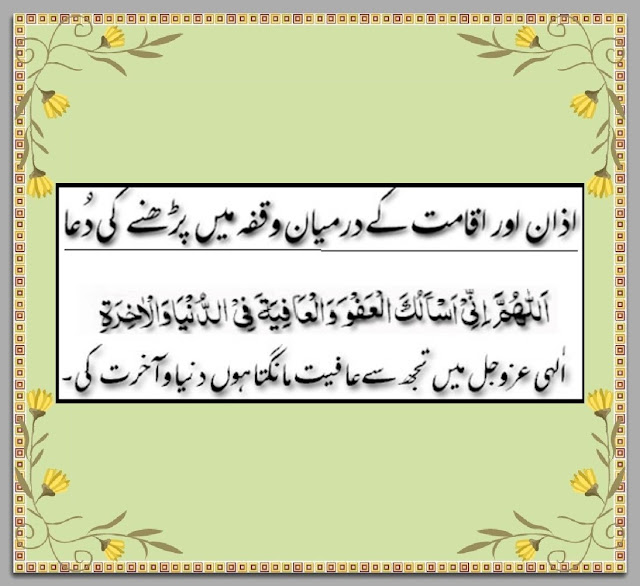 اذان اور اقامت کے درمیان وقفہ میں پڑھنے کی دُعا
اَللّٰهُمَّ اِنِّیْ اَسْاَلُكَ الْعَفْوَ وَالْعَافِیَةَ فِی الدُّنْیَا وَالْاٰخِرَةِ
اٰلہی عزوجل میں تجھ سے عافیت مانگتا ہوں دنیا و آخرت کی۔